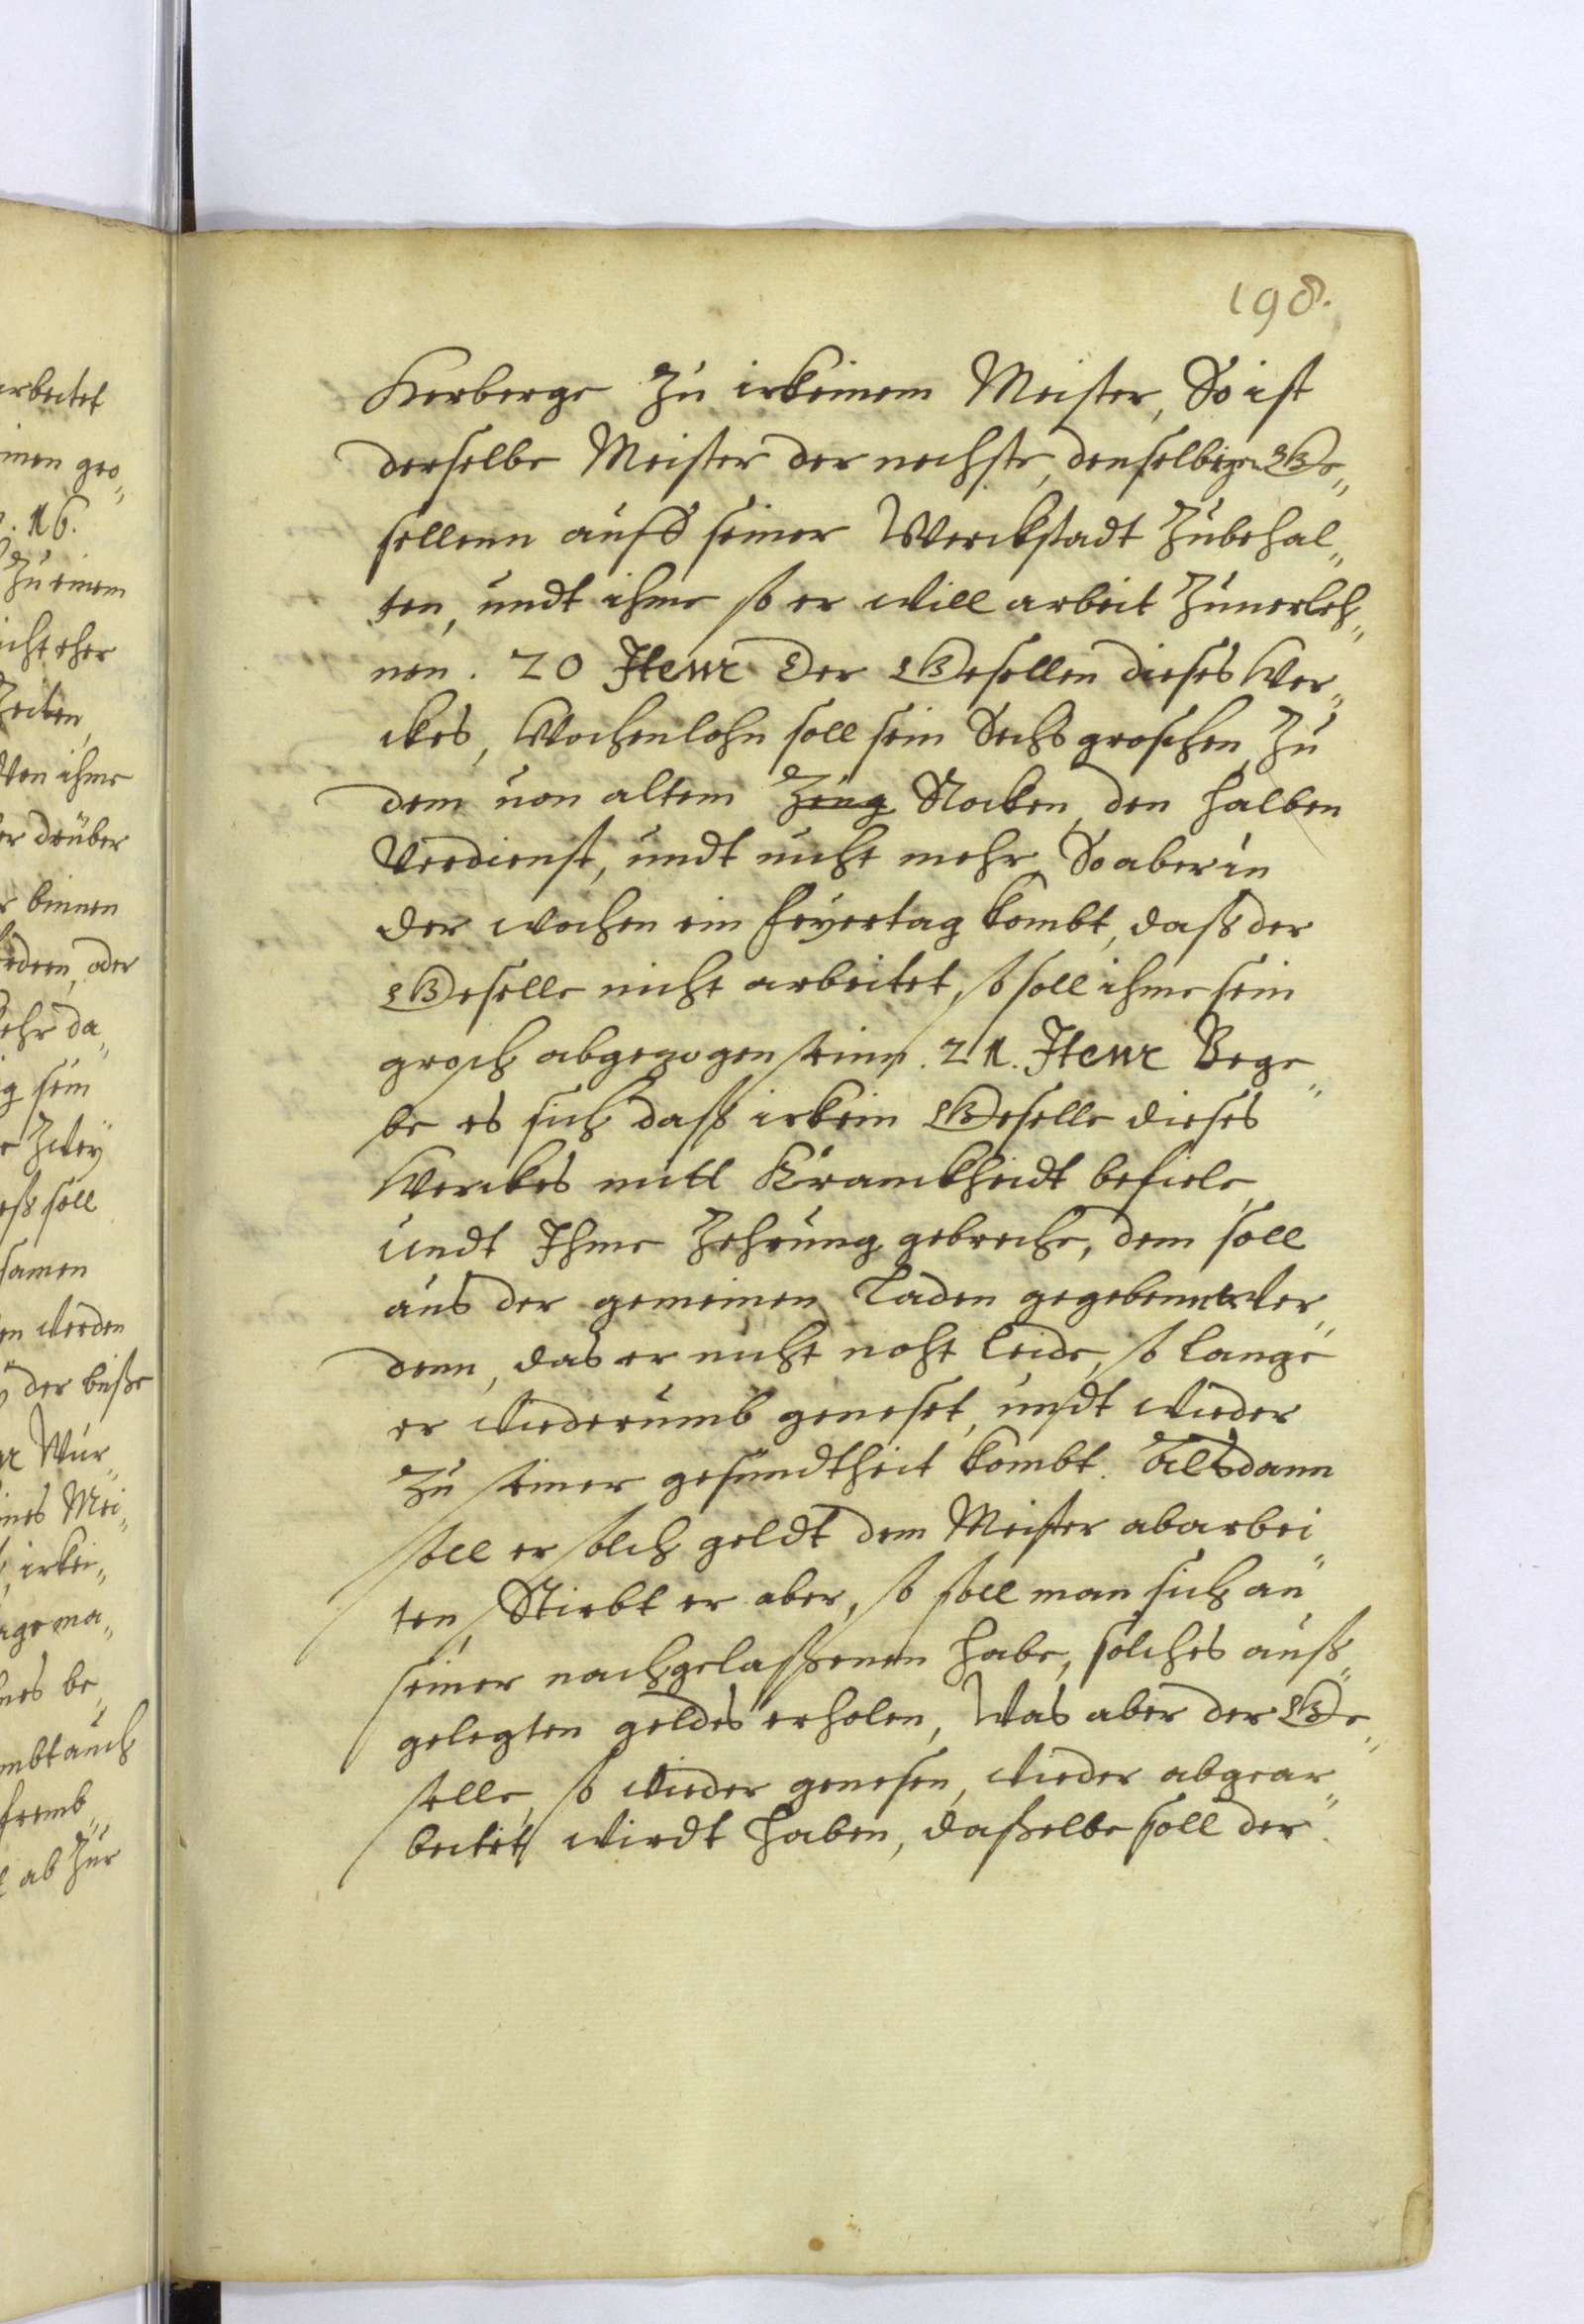 198.
Herberge zu irkeinem Meister, So ist
derselbe Meister der nechste, denselbigen Ge„
sellenn auff seiner Werckstadt zubehal„
ten, undt ihme so er will arbeit zuuerleh„
nen. 20 Item Der Gesellen dieses Wer„
ckes, Wochenlohn soll sein Sechs groschen, zu
dem uon altem Zeug Nocken, den halben
Verdienst, undt nicht mehr, So aber in
der wochen ein feyertag kombt, daß der
Geselle nicht arbeitet, so soll ihme sein
grosch abgezogen seinn. 21. Item Bege„
be es sich daß irkein Geselle dieses
Werckes mitt Kranckheidt befiele,
undt Ihme Zehrung gebreche, dem soll
aus der gemeinen Laden gegebenn wer„
denn, das er nicht noht leide, so lange
er wiederumb geneset, undt wieder
zu seiner gesundtheit kombt. Alsdann
soll er solch geldt dem Meister abarbei„
ten, Stirbt er aber, so soll man sich an
seiner nachgelaßenen habe, solches auß„
gelegten geldes erholen, Was aber der Ge„
selle, so wieder genesen, wieder abgear„
beitet wirdt haben, daßelbe soll der
arbeitet
einen gro„
16.
zu einem
nicht eher
Zeiten,
Von ihme
er drüber
binnen
oder
da„
sein
zwey
soll
samen
werden
der buße
Wur„
eines Mei„
irkei„
ma„
be„
auch
fremb„
ab zur